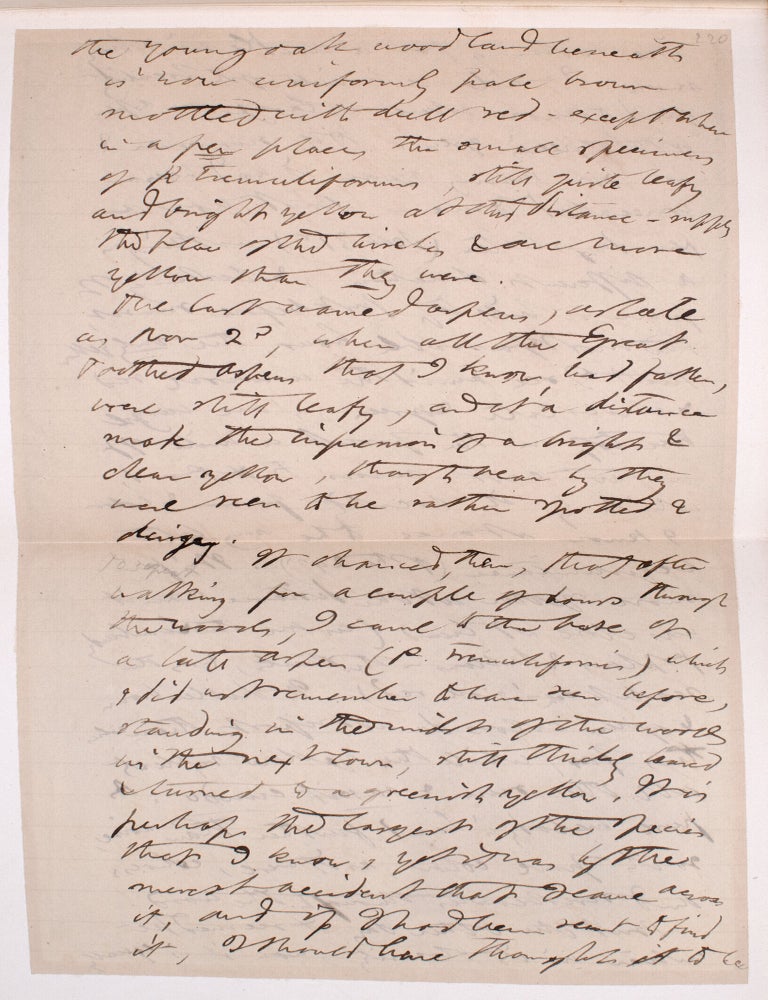 220
the young oak woodland beneath
is now uniformly pale brown
mottled with dull red - except where
in a few places the small specimens
of P. Tremuliformis, still quite leafy
and bright yellow at this distance - supply
the place of the birches & are more
yellow than they were.
The last named aspens, as late
as Nov 2d, when all the Great
Toothed Aspens that I know, had fallen,
were still leafy, and at a distance
made the impression of a bright &
clear yellow, though near by they
were seen to be rather spotted &
dingy.
It chanced, then, that after
walking for a couple of hours through
the woods, I came to the base of
a tall Aspen (P. tremuliformis) which
I did not remember to have seen before,
standing in the midst of the woods
in the next town, still thickly leaved
& turned to a greenish yellow. It is
perhaps the largest of the species
that I know, yet it was by the
merest accident that I came across
it, and if I had been sent to find
it, I should have thought it to be